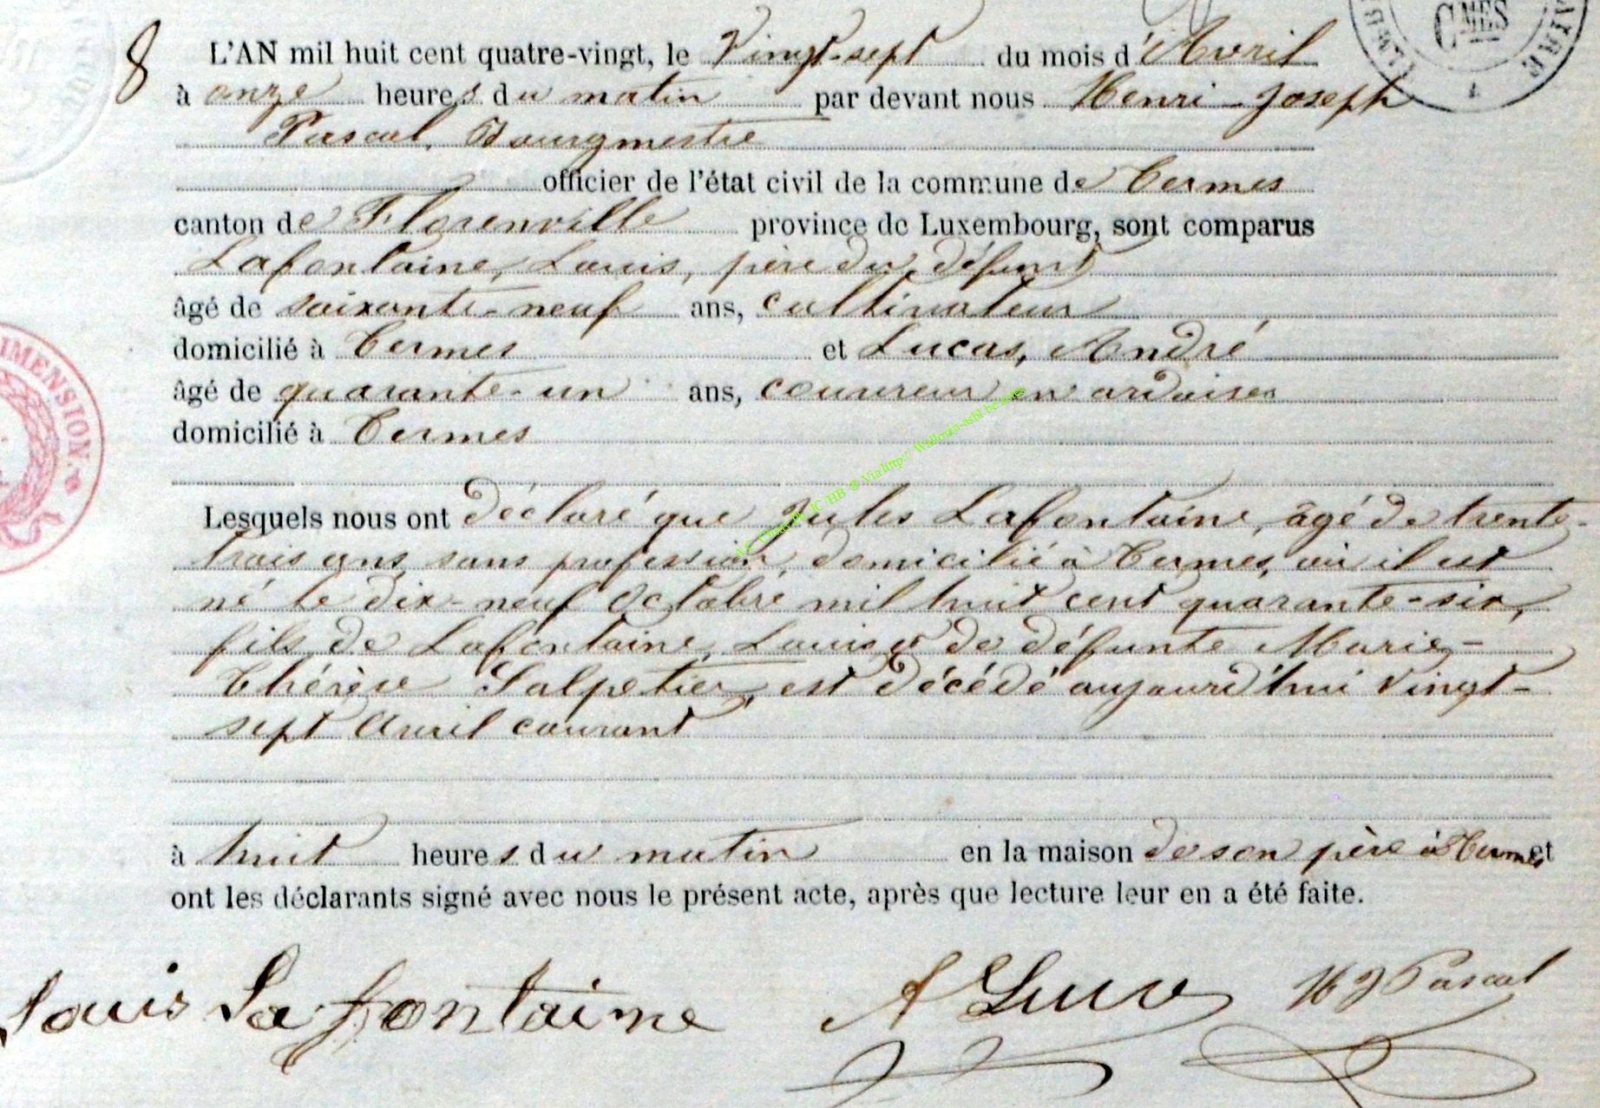 8
L'AN mil huit cent quatre-vingt, le Vingt-sept du mois d'Avril
à onze heures du matin par devant nous Henri-Joseph
Pascal, Bourgmestre
officier de l'état civil de la commune de Termes
canton de Florenville province de Luxembourg, sont comparus
Lafontaine, Louis, père du défunt
âgé de soixante-neuf ans, cultivateur
domicilié à Termes et Lucas, André
âgé de quarante-un ans, couvreur en ardoises
domicilié à Termes
Lesquels nous ont déclaré que Jules Lafontaine, âgé de trente-
trois ans, sans profession, domicilié à Termes, où il est
né le dix-neuf Octobre mil huit cent quarante-six,
fils de Lafontaine, Louis et de défunte Marie-
Thérèse Salpetier, est décédé aujourd'hui vingt-
sept Avril courant
à huit heures du matin en la maison de son père à Termes et
ont les déclarants signé avec nous le présent acte, après que lecture leur en a été faite.
Louis Lafontaine A Lucas HJ Pascal
DIMENSION.